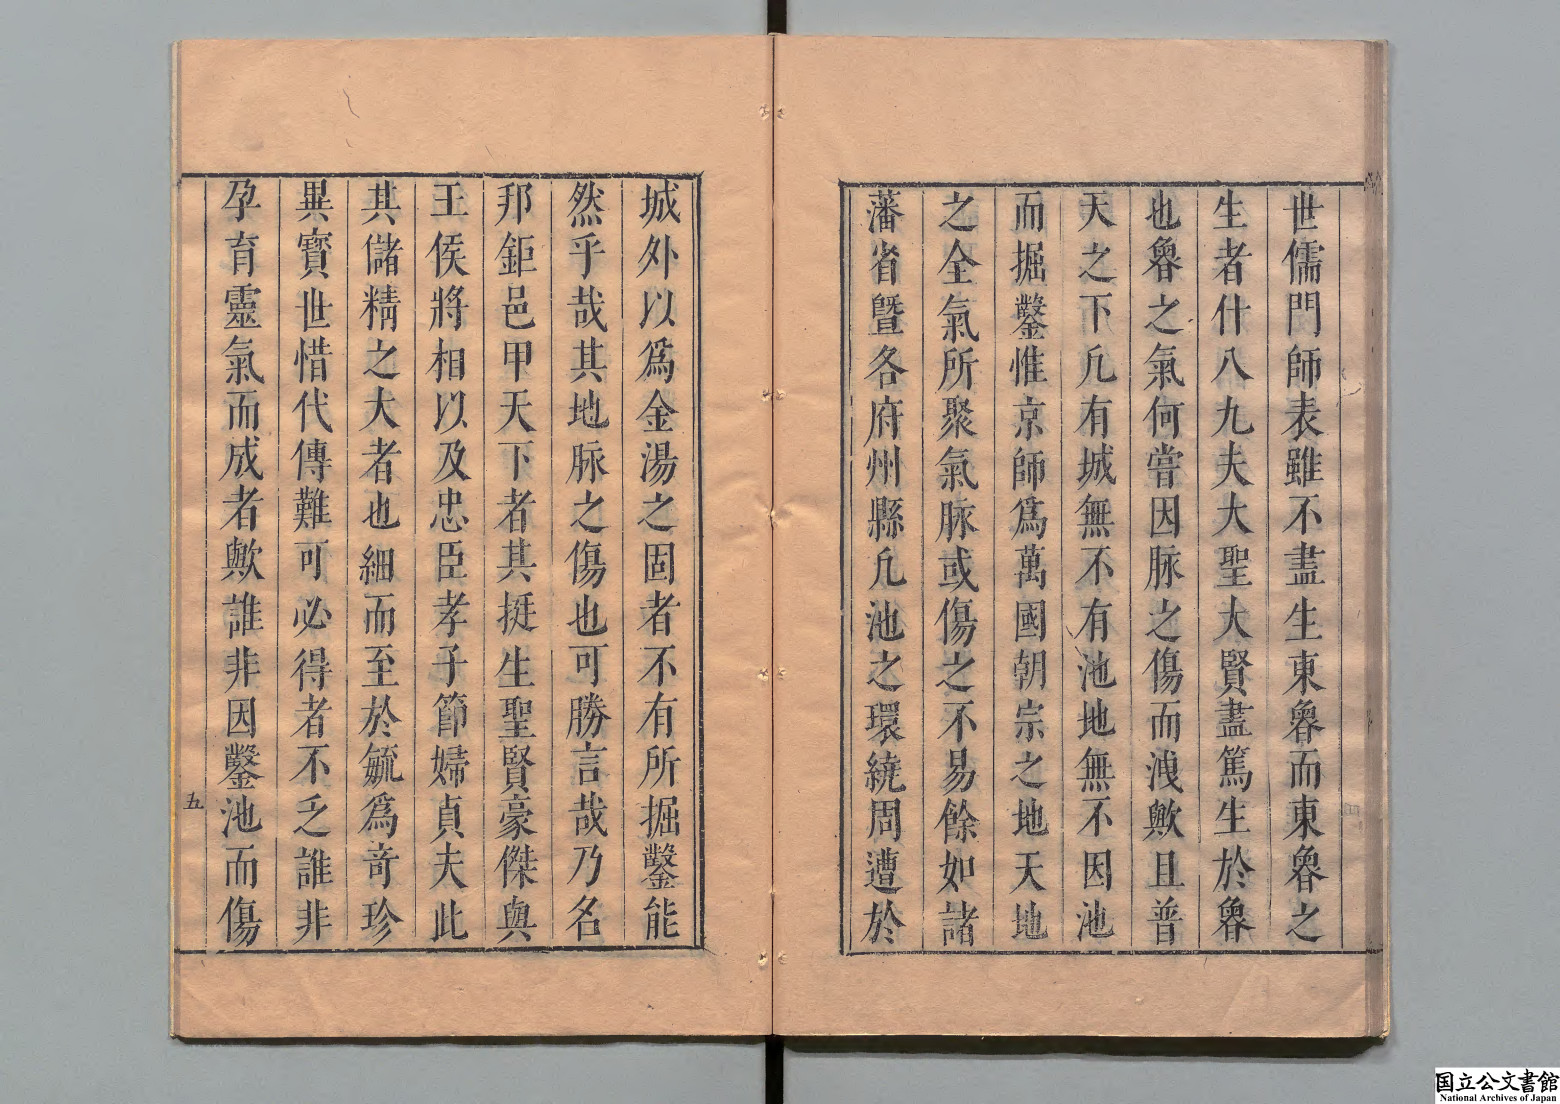 世儒門師表雖不盡生東魯而東魯之
生者什八九夫大聖大賢盡篤生於魯
也魯之氣何嘗因脉之傷而洩歟且普
天之下凢有城無不有池地無不因池
而掘鑿惟京師爲萬國朝宗之地天地
之全氣所聚氣脉或傷之不易餘如諸
藩省曁各府州縣凢池之環繞周遭於
城外以爲金湯之固者不有所掘鑿能
然乎哉其地脉之傷也可勝言哉乃名
邦鉅邑甲天下者其挺生聖賢豪傑與
王侯將相以及忠臣孝子節婦貞夫此
其儲精之大者也細而至於毓爲奇珍
異寶世惜代傳難可必得者不乏誰非
孕育靈氣而成者歟誰非因鑿池而傷
五
国立公文書館
National Archives of Japan